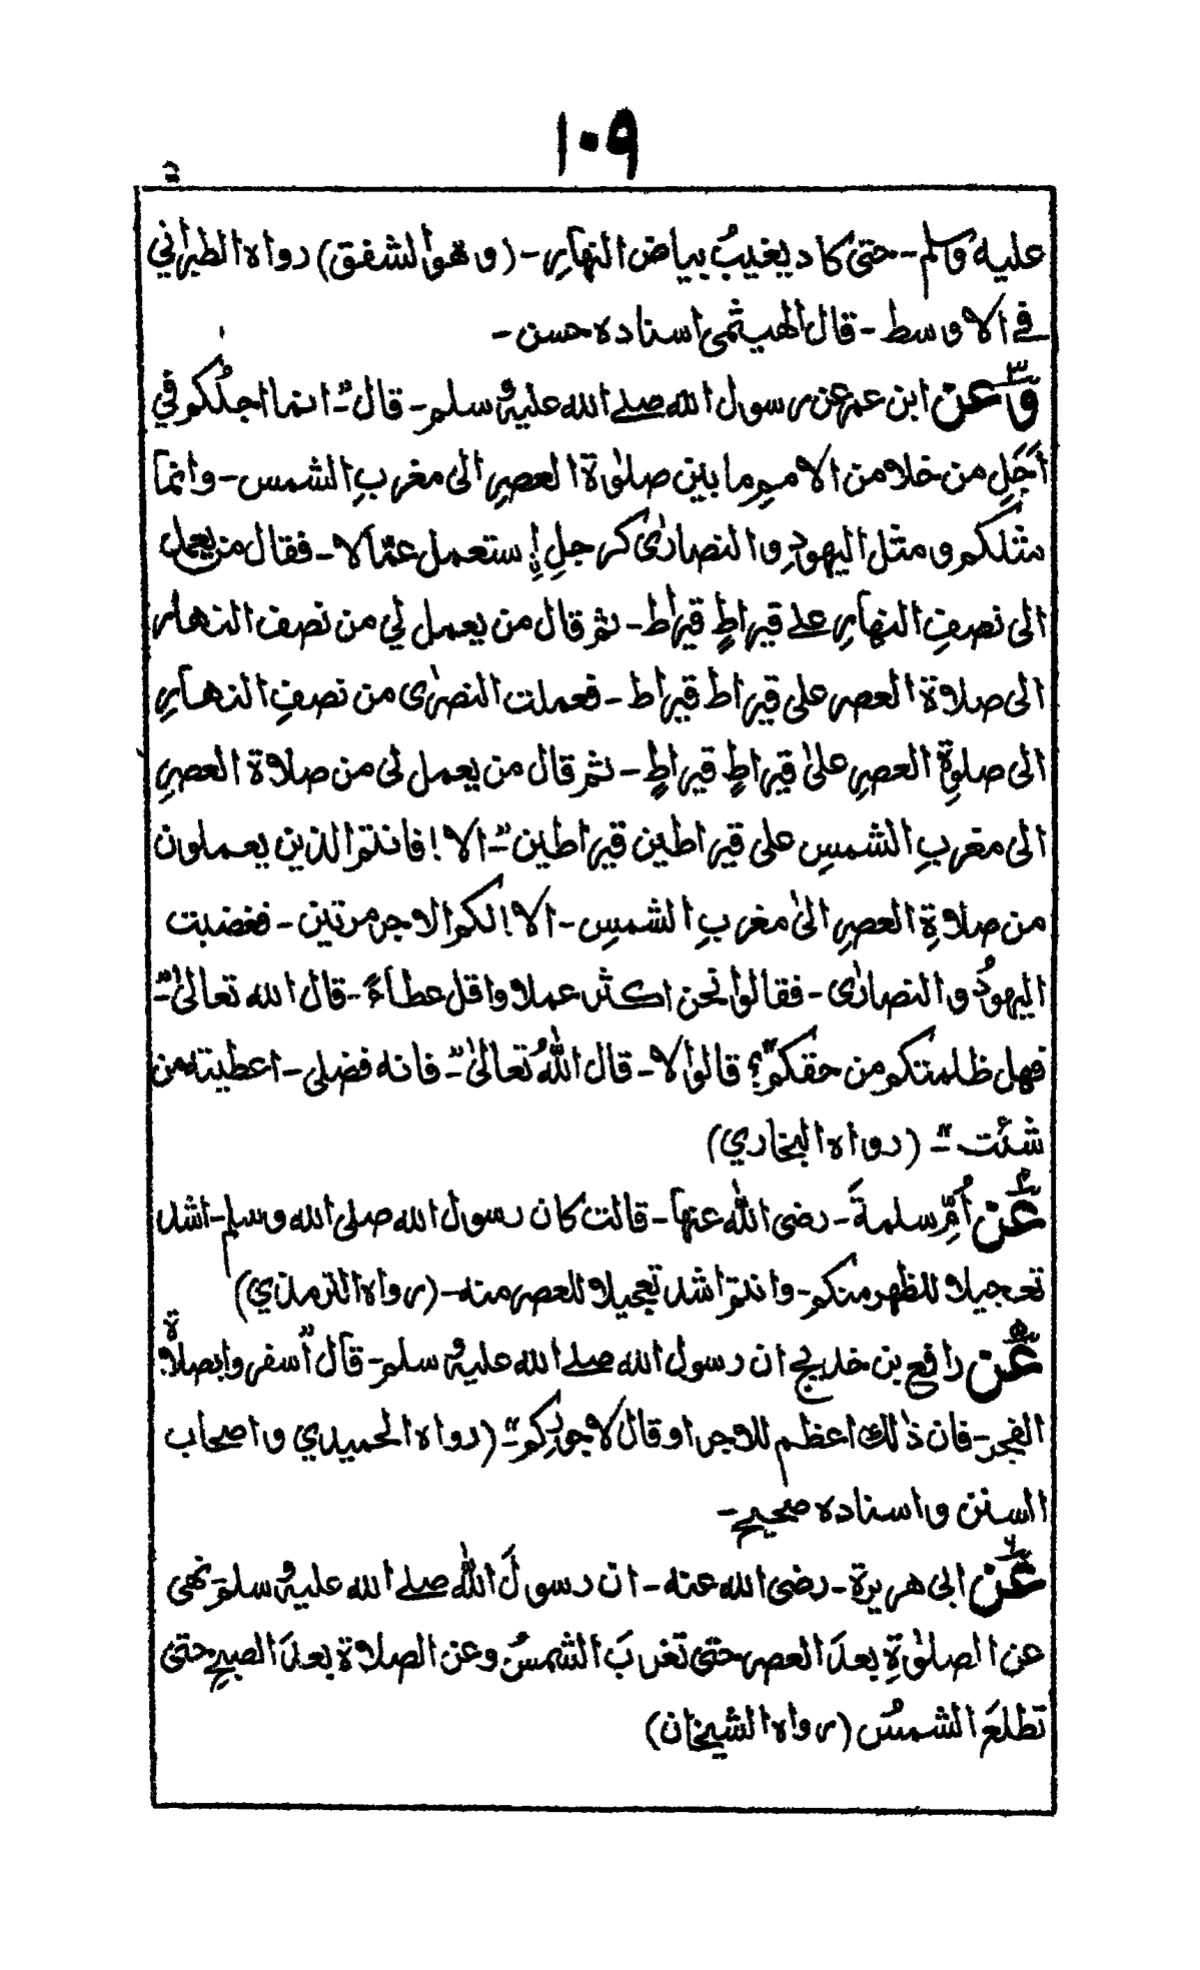 ١٠٩
عليه وسلم-- حتى كاد يغيبُ بياض النهارِ - (وهو الشفق) رواه الطبراني
في الاوسط - قال الهيثمى اسناده حسن -
٣
وَعن ابن عمر عن رسول الله صلے الله عليه وسلم - قال "- انما اجلُكم في
اَجَلِ من خلا من الاممِ ما بين صلوٰة العصرِ الى مغربِ الشمس - وانما
مثلكم ومثل اليهودِ والنصارىٰ كرجلِ اِستعمل عمّالا - فقال من يعمل
الى نصفِ النهارِ علے قيراطٍ قيراط - ثم قال من يعمل لي من نصف النهار
الى صلاة العصر على قيراط قيراط - فعملت النصرٰى من نصفِ النهارِ
الى صلوةِ العصرِ علىٰ قيراطٍ قيراطٍ - ثم قال من يعمل لى من صلاة العصرِ
الى مغربِ الشمسِ على قيراطين قيراطين "- الا! فانتم الذين يعملون
من صلاةِ العصرِ الىٰ مغربِ الشمسِ - الا! لكم الاجر مرتين - فغضبت
اليهودُ والنصارٰى - فقالوا نحن اكثر عملا واقل عطاءً - قال الله تعالىٰ "-
فهل ظلمتكم من حقكم"؟ قالوا لا - قال اللهُ تعالىٰ "- فانه فضلى - اعطيته من
شئت "- (رواه البخاري)
٤
عَن اُمِّ سلمةَ - رضى الله عنها - قالت كان رسول الله صلى الله وسلم - اشد
تعجيلا للظهر منكم - وانتم اشد تعجيلا للعصر منه - (رواه الترمذي)
٥
عَن رافع بن خديج ان رسول الله صلے الله عليه وسلم - قال "اسفروا بصلاة
الفجر - فان ذٰلك اعظم للاجر او قال لاجوركم "- (رواه الحميدي واصحاب
السنن واسناده صحيح -
٦
عَن ابى هريرة - رضى الله عنه - ان رسولَ الله صلے الله عليه وسلم - نهى
عن الصلوٰةِ بعدَ العصر حتى تغربَ الشمسُ وعن الصلاة بعدَ الصبحِ حتى
تطلعَ الشمسُ (رواه الشيخان)